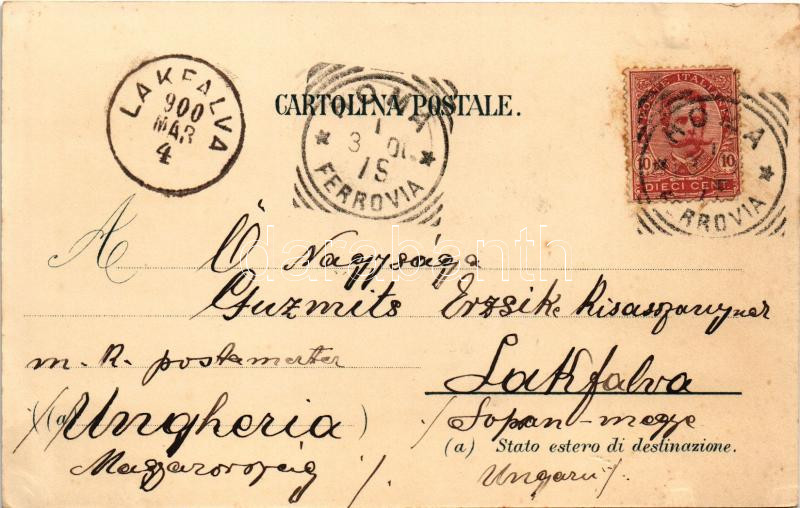 LAKFALVA
900
MAR
4
ROMA
1
3 00
18
FERROVIA
CARTOLINA POSTALE.
POSTE ITALIANE
10 10
DIECI CENT
ROMA
FERROVIA
darabanth
A Ő Nagysága
Guzmits Erzsike Kisasszonynak
m. k. postamester
Lakfalva
(a) Ungheria )
Sopron-megye
(a) Stato estero di destinazione.
Magyarország
Ungarn